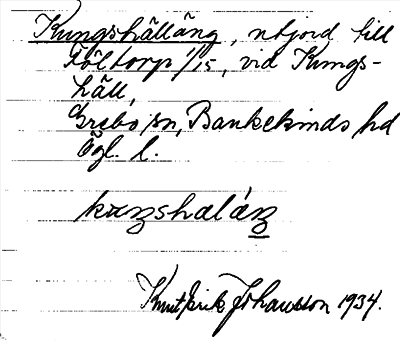 Kungshälläng, utjord till
Föltorp 1/15, vid Kungs-
häll,
Grebo sn, Bankekinds hd
Ögl. l.
Knut Erik Johansson 1934.